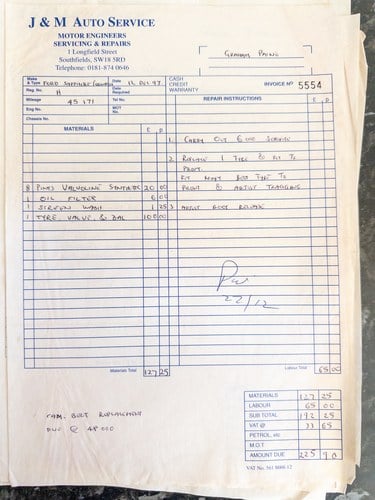 J & M AUTO SERVICE
MOTOR ENGINEERS
SERVICING & REPAIRS
1 Longfield Street
Southfields, SW18 5RD
Telephone: 0181-874 0646
GRAHAM
Make & Type FORD Date 12 DEC 97 CASH CREDIT WARRANTY INVOICE Nº 5554
Reg. No. Date Required
Mileage 45 171 Tel No. REPAIR INSTRUCTIONS
Eng No. MOT No.
Chassis No.
MATERIALS £ p £ p
1. CARRY OUT 6000 SERVICE
2. REPLACE 1 TYRE & FIT TO
FRONT.
FIT MOST TYRE TO
FRONT & ADJUST TRACKING
8 PINTS VALVOLINE SYNTHETIC 20 00
1 OIL FILTER 6 00
1 SCREEN WASH 1 25 3 ADJUST
1 TYRE, VALVE, & BAL 100 00
22/12
Materials Total 127 25 Labour Total 65 00
CAM. BELT REPLACEMENT
DUE @ 48 000
MATERIALS 127 25
LABOUR 65 00
SUB TOTAL 192 25
VAT @ 33 65
PETROL, etc
M.O.T
AMOUNT DUE 225 90
VAT No. 561 8008 12